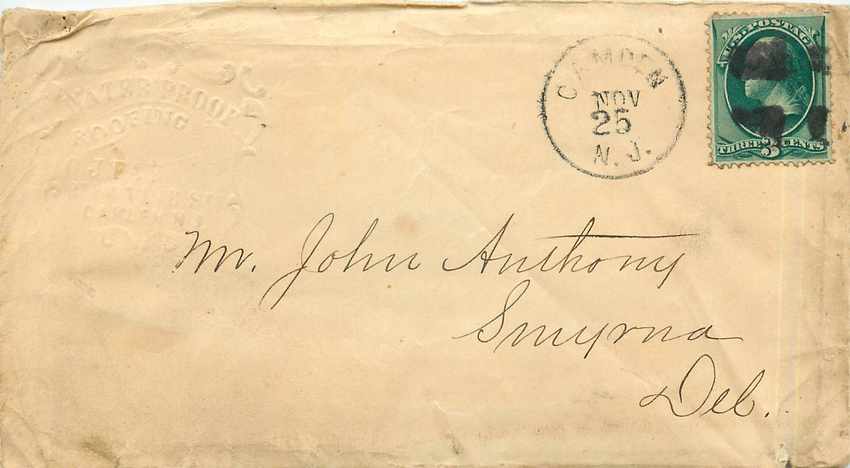 WATER PROOF
ROOFING
CAMDEN
NOV
25
N. J.
U.S. POSTAGE
THREE 3 CENTS
Mr. John Anthony
Smyrna
Del.